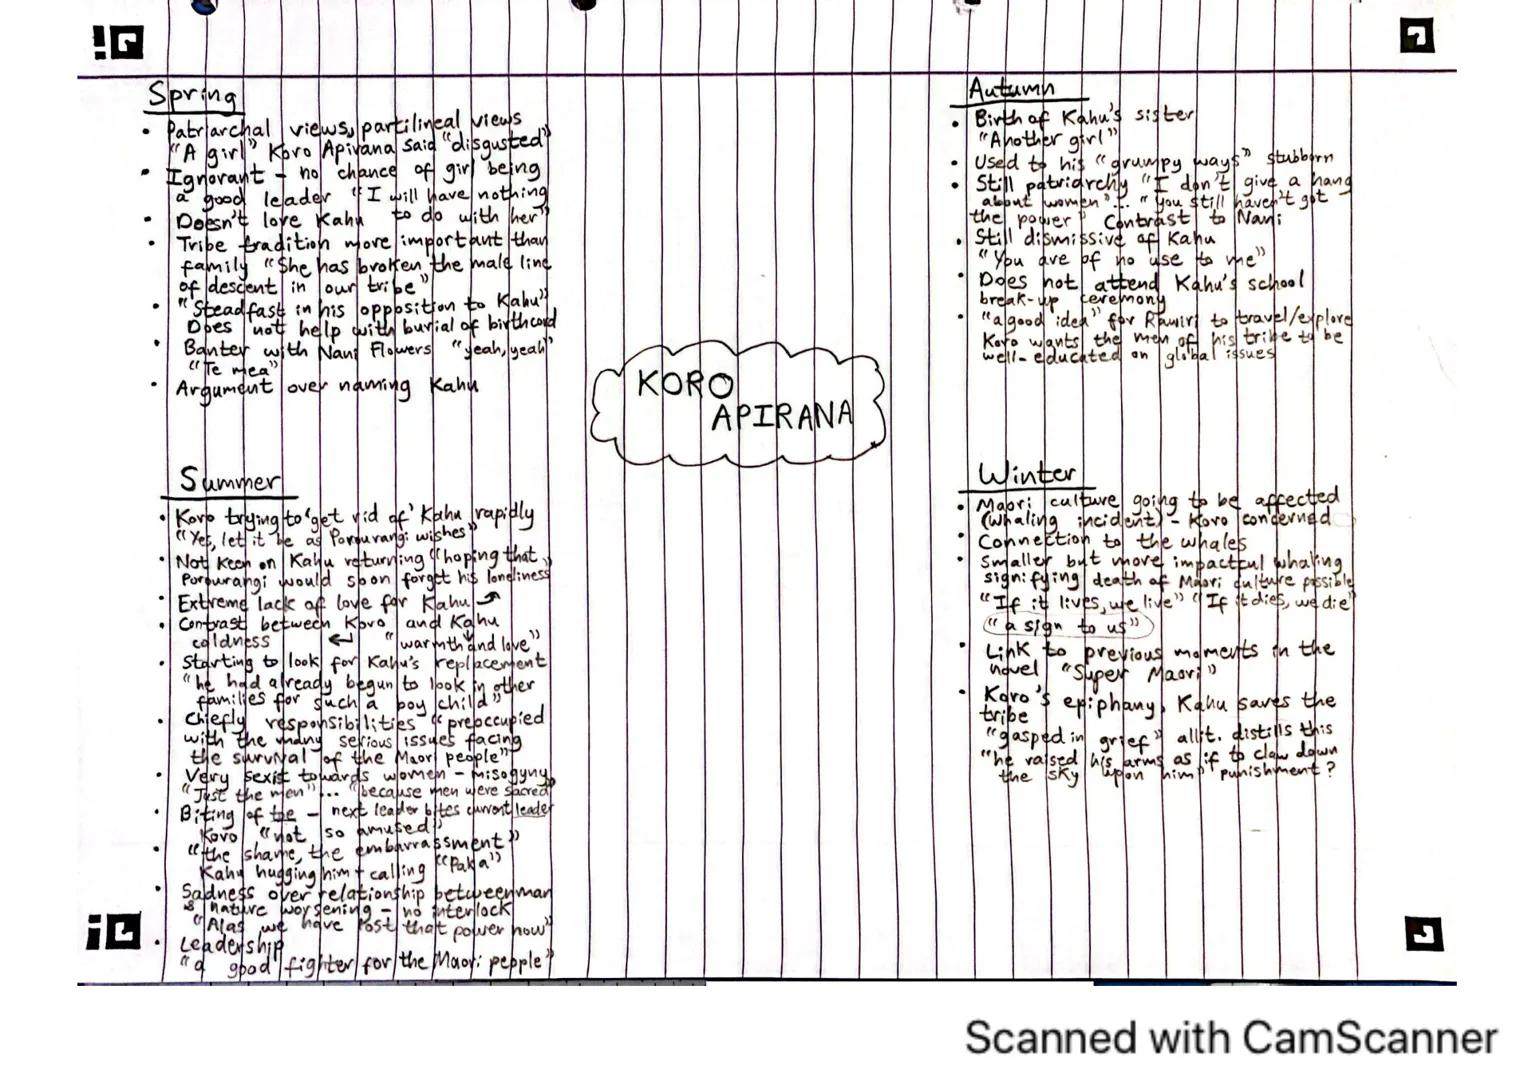 Spring
• Patriarchal views, partilineal views
"A girl" Koro Apirana said "disgusted"
• Ignorant - no chance of girl being
a good leader "I will have nothing
• Doesn't love Kahu to do with her"
• Tribe tradition more important than
family "She has broken the male line
of descent in our tribe"
• "Steadfast in his opposition to Kahu"
Does not help with burial of birthcord
• Banter with Nani Flowers "yeah, yeah"
"Te mea"
• Argument over naming Kahu
Summer
• Koro trying to 'get rid of' Kahu rapidly
"Yes, let it be as Porourangi wishes"
• Not keen on Kahu returning "hoping that
Porourangi would soon forget his loneliness"
• Extreme lack of love for Kahu
• Contrast between Koro and Kahu
coldness ↵ "warmth and love"
• Starting to look for Kahu's replacement
"he had already begun to look in other
families for such a boy child"
• Chiefly responsibilities "preoccupied
with the many serious issues facing
the survival of the Maori people"
• Very sexist towards women - misogyny
"Just the men"... "because men were sacred"
• Biting of toe - next leader bites current leader
Koro "not so amused"
• "the shame, the embarrassment"
Kahu hugging him + calling "Paka"
• Sadness over relationship between man
& nature worsening - no interlock
"Alas, we have lost that power now"
• Leadership
"a good fighter for the Maori people"
KORO
APIRANA
Autumn
• Birth of Kahu's sister
"Another girl"
• Used to his "grumpy ways" stubborn
• Still patriarchy "I don't give a hang
about women"... "you still haven't got
the power" Contrast to Nani
• Still dismissive of Kahu
"You are of no use to me"
• Does not attend Kahu's school
break-up ceremony
• "a good idea" for Rawiri to travel/explore
Koro wants the men of his tribe to be
well-educated on global issues
Winter
• Maori culture going to be affected
(whaling incident) - Koro concerned
• Connection to the whales
• Smaller but more impactful whaling
signifying death of Maori culture possible
"If it lives, we live" "If it dies, we die"
"a sign to us"
• Link to previous moments in the
novel "Super Maori"
• Koro's epiphany, Kahu saves the
tribe
"gasped in grief" allit. distills this
"he raised his arms as if to claw down
the sky upon him" punishment?
Scanned with CamScanner